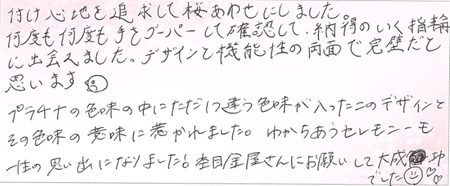 付け心地を追求して桜あわせにしました。
何度も何度も手をグーパーして確認して、納得のいく指輪
に出会えました。デザインと機能性の両面で完璧だと
思います
プラチナの色味の中にただ1つ違う色味が入ったこのデザインと
その色味の意味に惹かれました。わかちあうセレモニーも
一生の思い出になりました!杢目金屋さんにお願いして大成功
でした